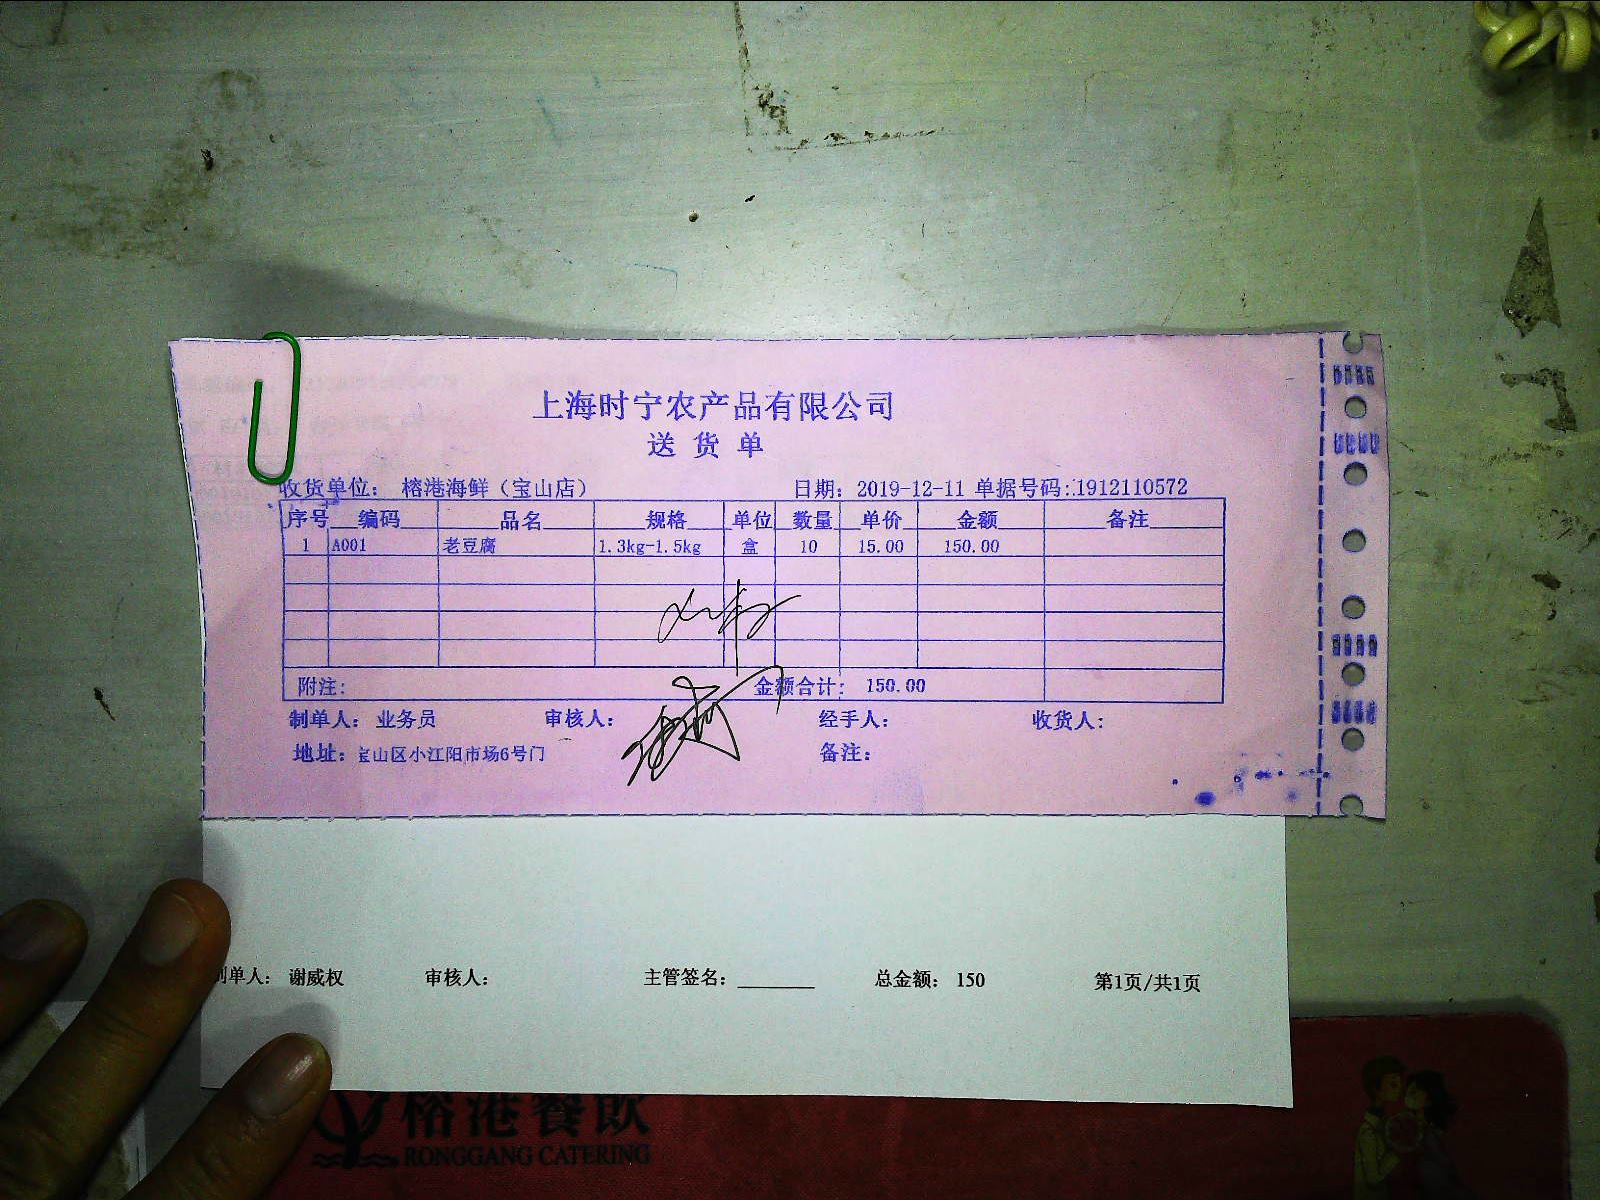 上海时宁农产品有限公司
送货单
收货单位： 榕港海鲜（宝山店） 日期：2019-12-11 单据号码：1912110572
序号 编码 品名 规格 单位 数量 单价 金额 备注
1 A001 老豆腐 1.3kg-1.5kg 盒 10 15.00 150.00
附注： 金额合计： 150.00
制单人： 业务员 审核人： 经手人： 收货人：
地址：宝山区小江阳市场6号门 备注：
制单人： 谢威权 审核人： 主管签名：________ 总金额： 150 第1页/共1页
榕港餐飲
RONGGANG CATERING